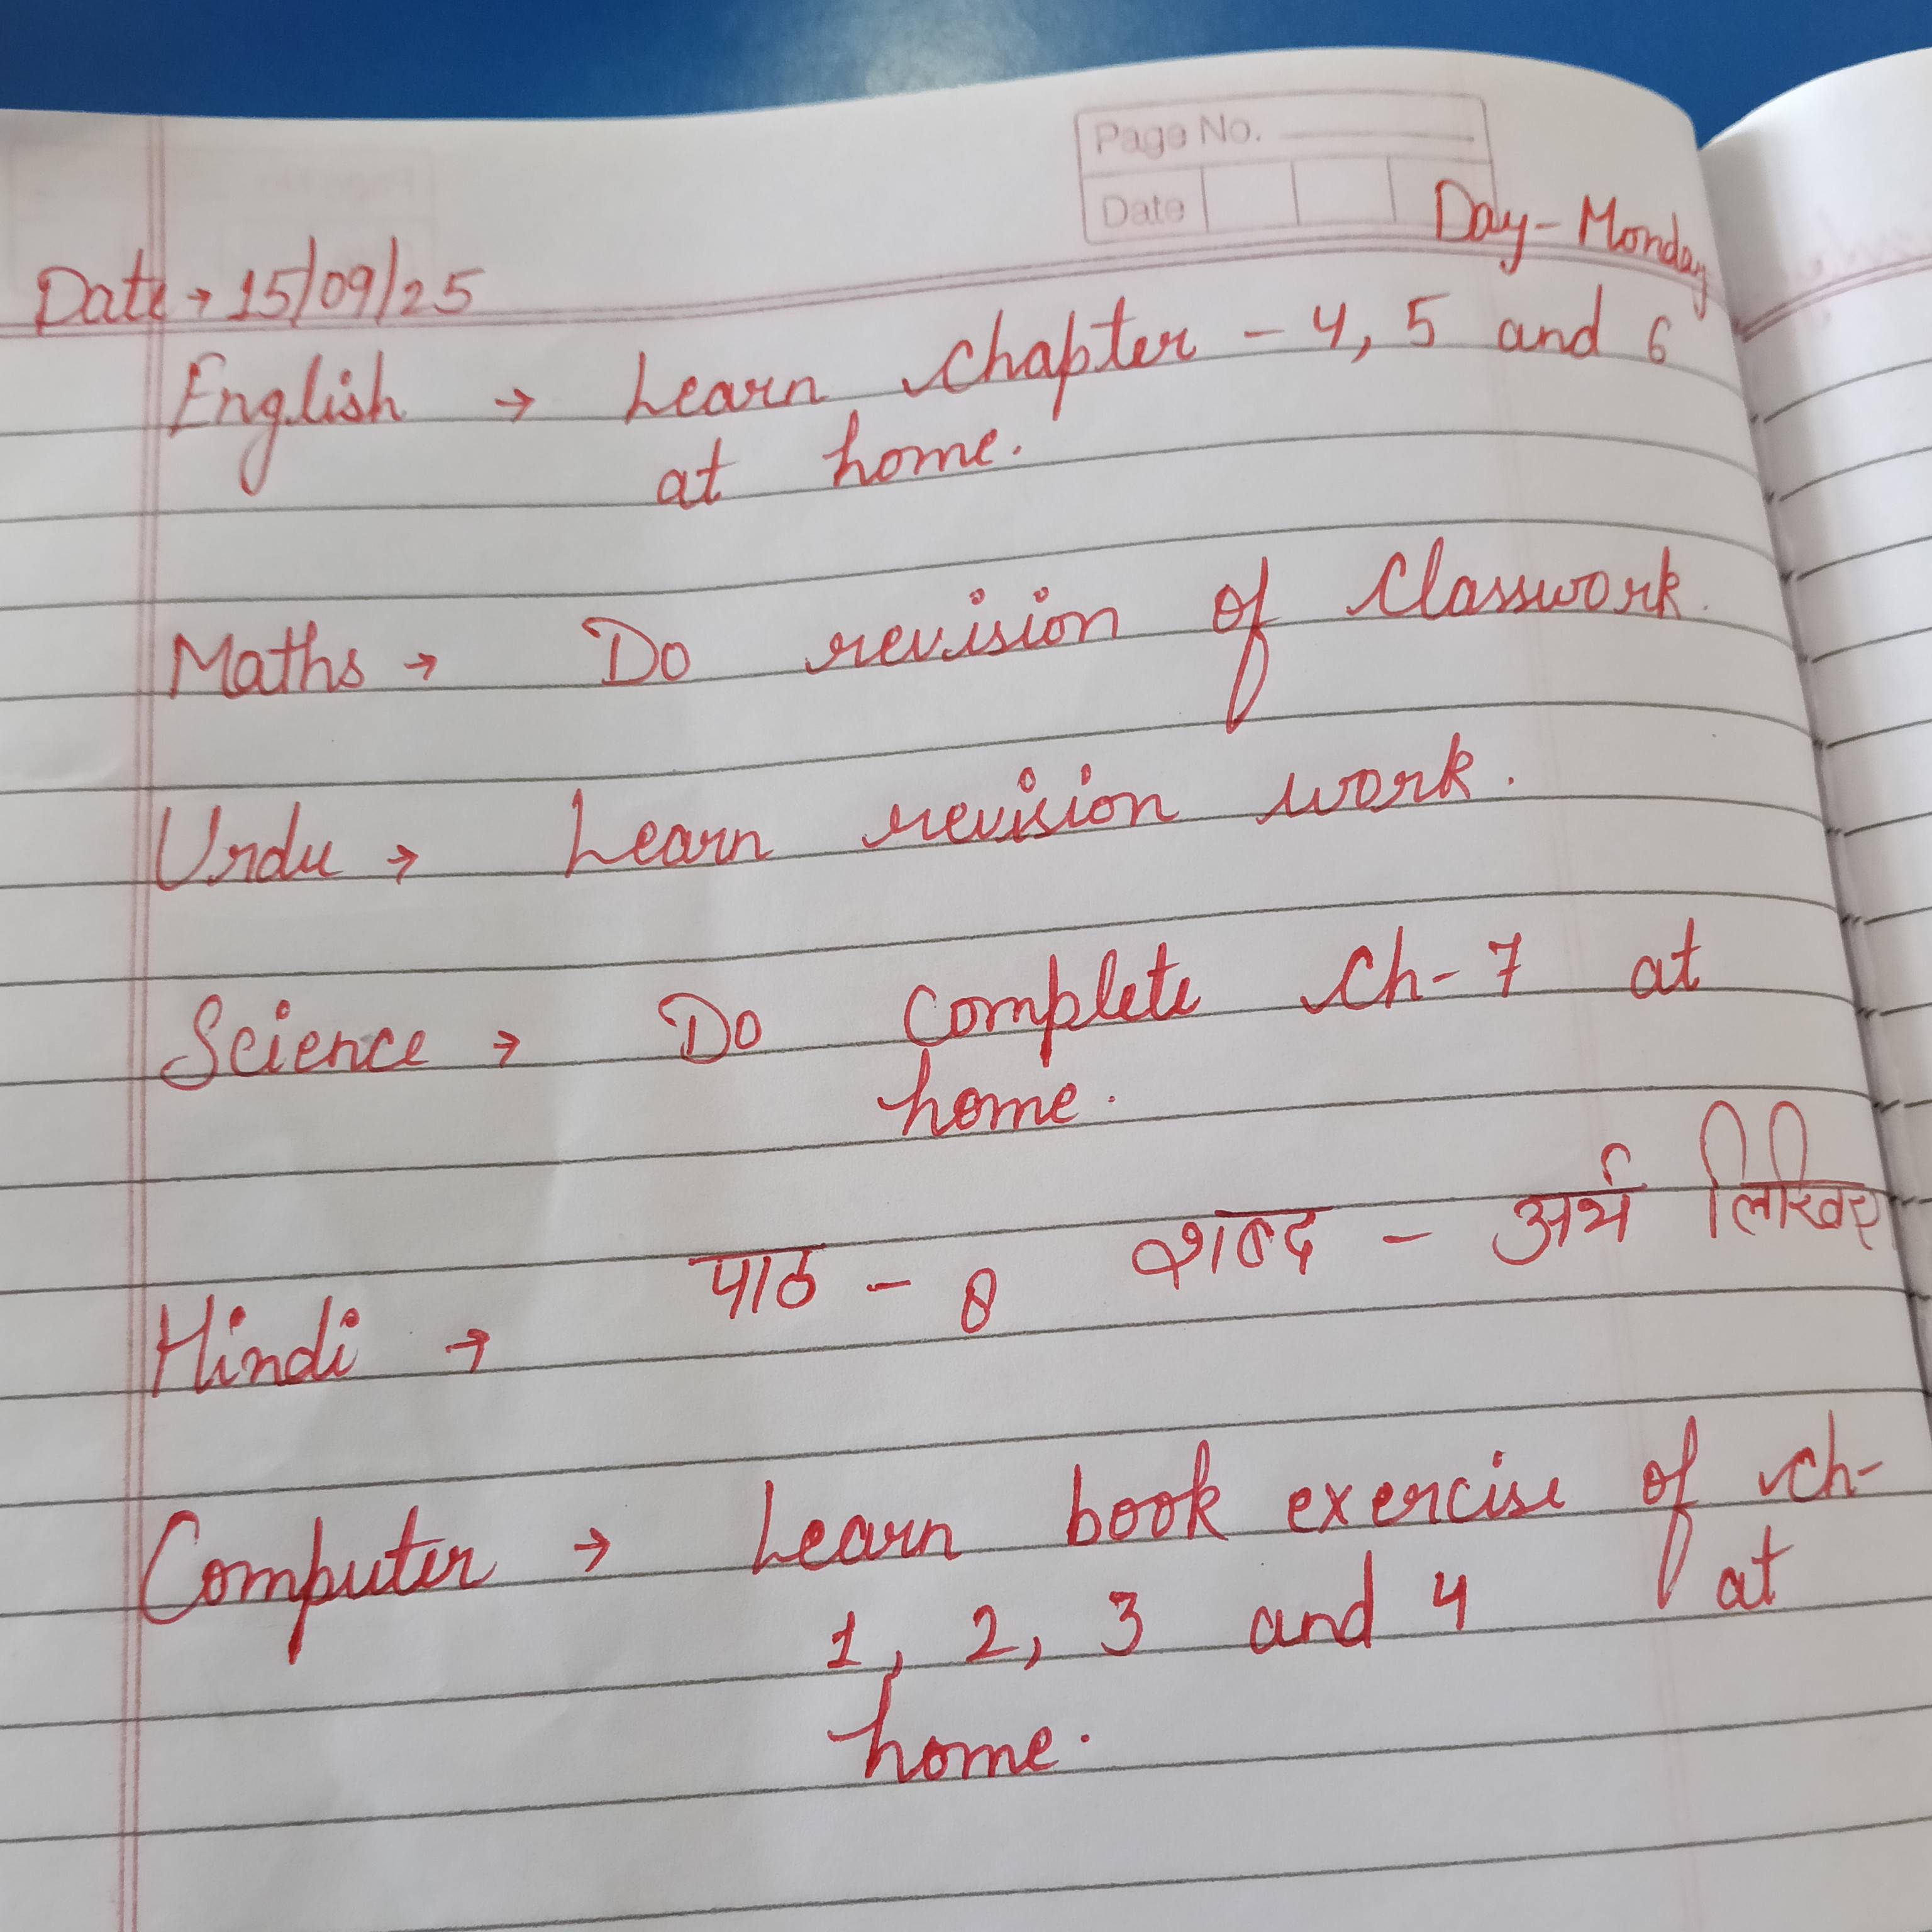 Page No.
Date
Day - Monday
Date → 15/09/25
English → Learn chapter - 4, 5 and 6
at home.
Maths → Do revision of Classwork.
Urdu → Learn revision work.
Science → Do complete ch-7 at
home.
Hindi → पाठ - 8 शब्द - अर्थ लिखिए
Computer → Learn book exercise of ch-
1, 2, 3 and 4 at
home.